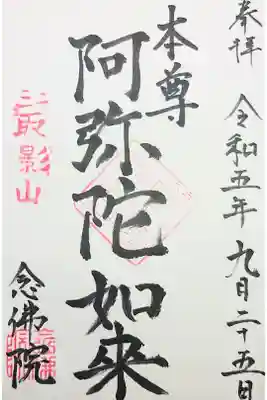 奉拝 令和五年九月二十五日
本尊
阿弥陀如来
念佛院